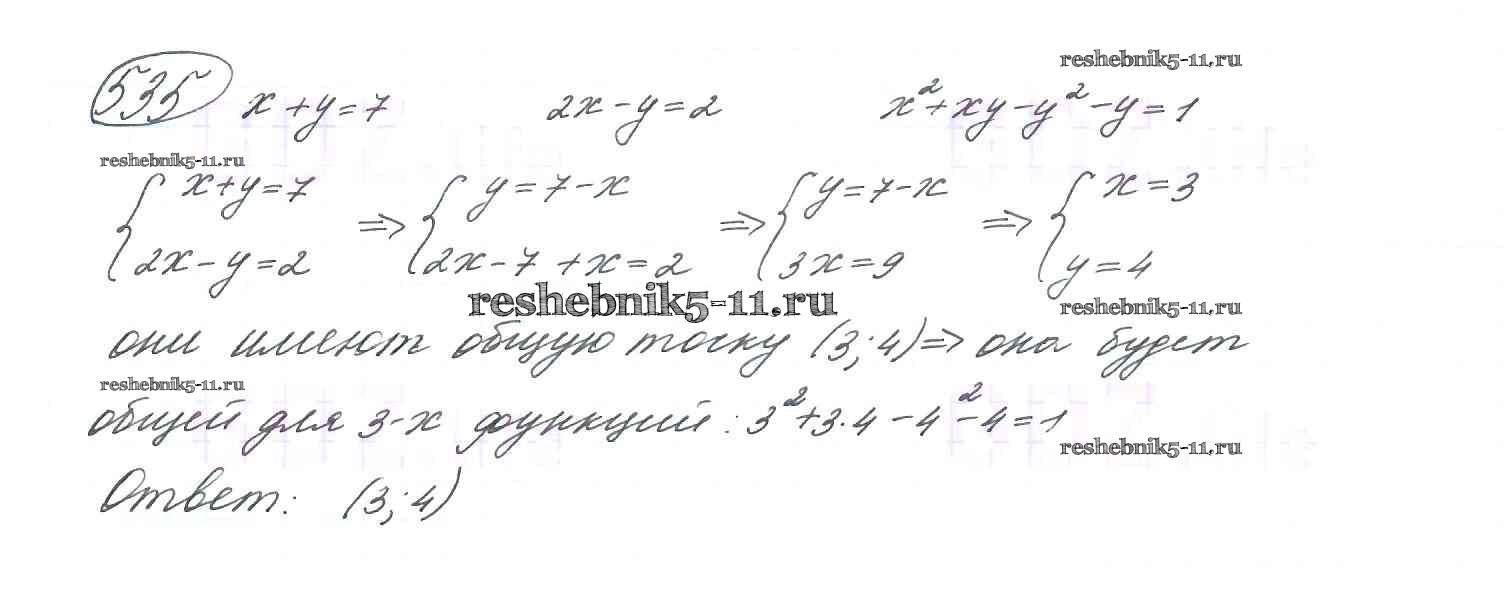 reshebnik5-11.ru
535 x+y=7 2x-y=2 x²+xy-y²-y=1
reshebnik5-11.ru
{ x+y=7 ⇒ { y=7-x ⇒ { y=7-x ⇒ { x=3
2x-y=2 2x-7+x=2 3x=9 y=4
reshebnik5-11.ru
reshebnik5-11.ru
они имеют общую точку (3;4)⇒ она будет
reshebnik5-11.ru
общей для 3-х функций: 3²+3·4-4²-4=1
reshebnik5-11.ru
Ответ: (3;4)